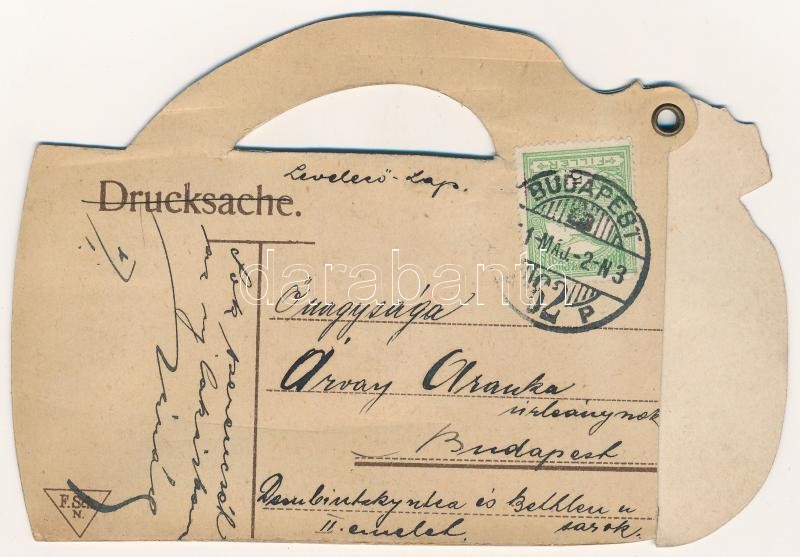 Levelező-Lap.
Drucksache.
FILLÉR
BUDAPEST
MÁJ.-2-N3
Őnagysága
Árvay Aranka
úrleánynak
Budapest
Dembinszky utca és Bethlen u
sarok.
II. emelet.
Sok szerencsét
az új lakásban
F. Sch.
N.
darabanth